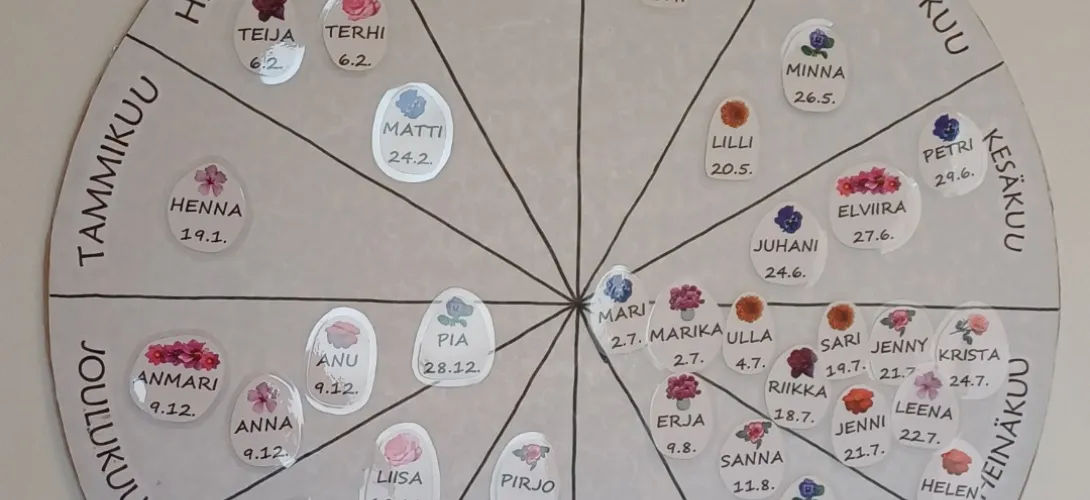 TEIJA
6.2.
TERHI
6.2.
MATTI
24.2.
TAMMIKUU
HENNA
19.1.
KUU
MINNA
26.5.
LILLI
20.5.
KESÄKUU
PETRI
29.6.
ELVIIRA
27.6.
JUHANI
24.6.
JOULUKUU
ANMARI
9.12.
ANNA
9.12.
ANU
9.12.
PIA
28.12.
LIISA
PIRJO
MARI
2.7.
MARIKA
2.7.
ULLA
4.7.
SARI
19.7.
JENNY
21.7
KRISTA
24.7.
RIIKKA
18.7.
JENNI
21.7.
LEENA
22.7.
ERJA
9.8.
SANNA
11.8.
HELEN
HEINÄKUU